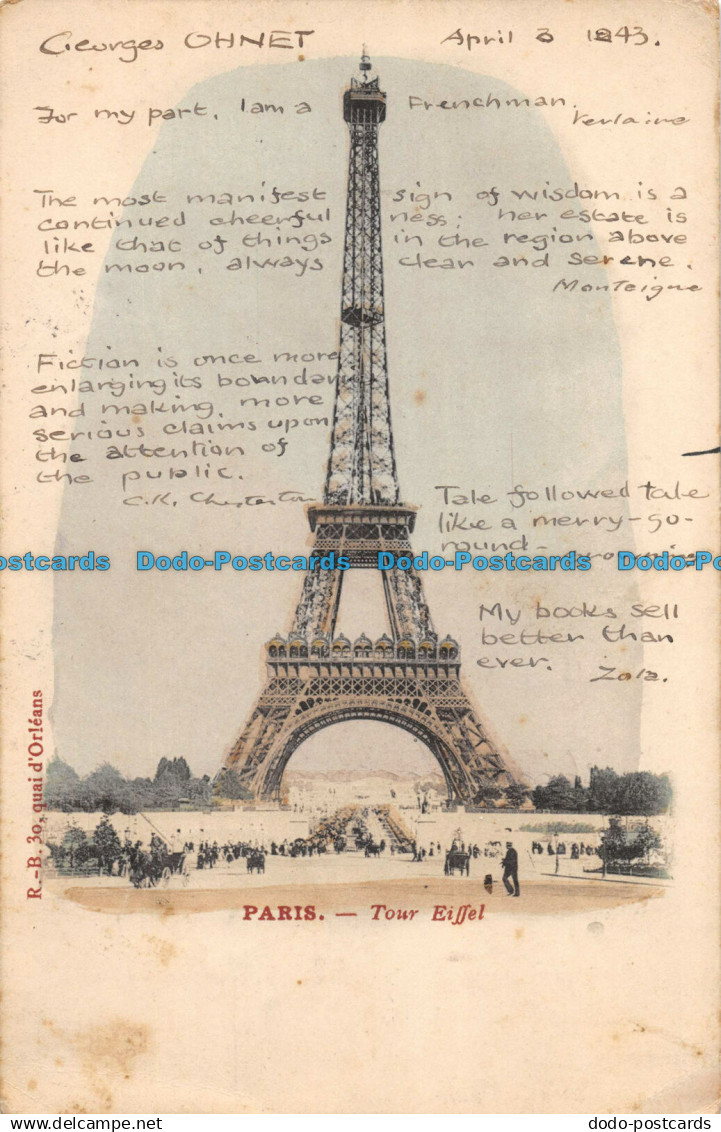 Georges OHNET April 3 1843.
For my part, I am a Frenchman.
Verlaine
The most manifest sign of wisdom is a
continued cheerfulness; her estate is
like that of things in the region above
the moon, always clear and serene.
Monteigne
Fiction is once more
enlarging its boundary
and making, more
serious claims upon
the attention of
the public.
C.K. Chesterton
Tale followed tale
like a merry-go-
round-
Postcards Dodo-Postcards Dodo-Postcards Dodo-Postcards
My books sell
better than
ever.
Zola.
R.-B. 30, quai d'Orléans
PARIS. — Tour Eiffel
dodo-postcards